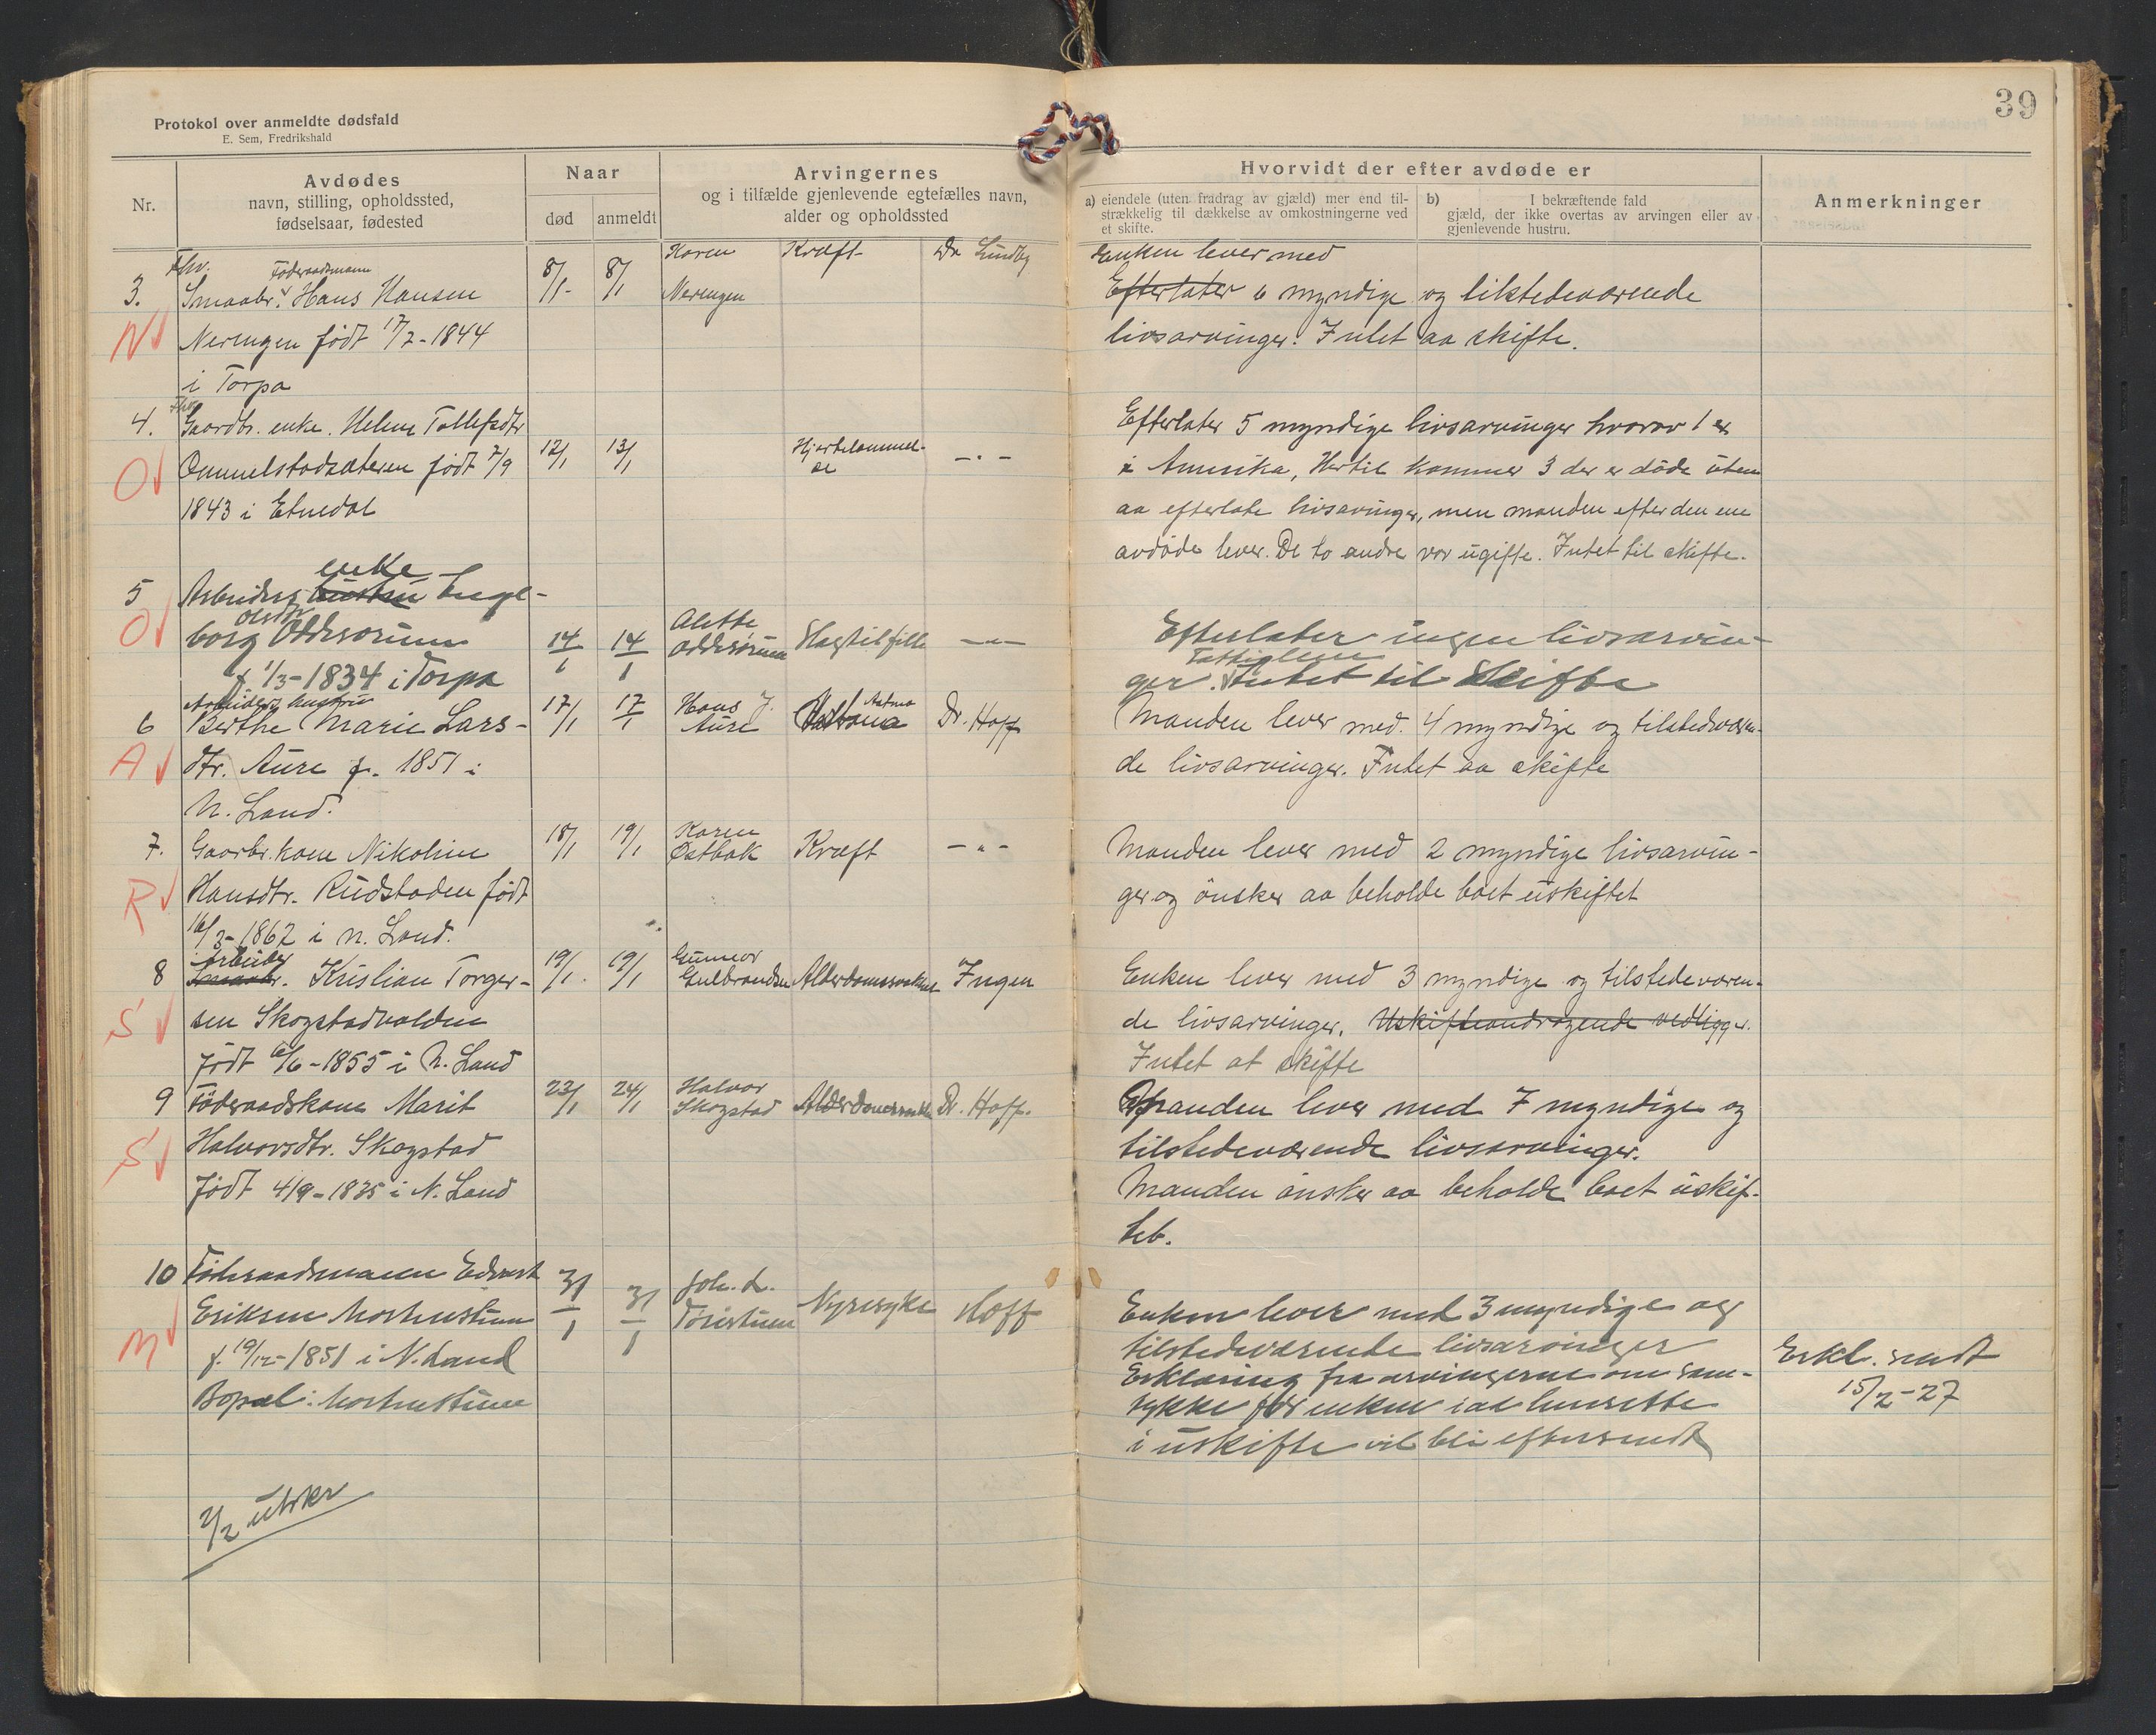 39
Protokol over anmeldte dødsfald
E. Sem, Fredrikshald
Nr.
Avdødes
navn, stilling, opholdssted,
fødselsaar, fødested
Naar
død
anmeldt
Arvingernes
og i tilfælde gjenlevende egtefælles navn,
alder og opholdssted
Hvorvidt der efter avdøde er
a) eiendele (uten fradrag av gjæld) mer end til-
strækkelig til dækkelse av omkostningerne ved
et skifte.
b) I bekræftende fald
gjæld, der ikke overtas av arvingen eller av
gjenlevende hustru.
Anmerkninger
Fhv. Føderaadsmann
3. Smaabr. Hans Hansen 8/1 8/1 Karen Kræft Dr Lundby
N Neringen født 17/2-1844 Neringen
i Torpa
Enken lever med
Efterlater 6 myndige og tilstedeværende
livsarvinger. Intet aa skifte.
Fhv.
4. Gaardbr. enke. Helene Tollefsdtr
O Ommelstadsæteren født 7/9 12/1 13/1 Hjertelammel- - " -
se
1843 i Etnedal
Efterlater 5 myndige livsarvinger hvorav 1 er
i Amerika, Hertil kommer 3 der er døde uten
aa efterlate livsarvinger, men manden efter den ene
avdøde lever. De to andre var ugifte. Intet til skifte.
enke
5 Arbeiders hustru Inge-
Olsdtr
O borg Oddesørum 14/1 14/1 Alette Oddesørum Slagtilfille - " -
f 1/3-1834 i Torpa
Efterlater ingen livsarvin-
Fattiglem
ger. Intet til Skifte
Arbeiders hustru
6 Berthe Marie Lars- 17/1 17/1 Hans J. Aure Astma Dr. Hoff
A dtr. Aure f. 1851 i
N. Land.
Manden lever med 4 myndige og tilstedeværen-
de livsarvinger. Intet aa skifte
7. Gaardbr. kone Nikoline 18/1 19/1 Karen Østbak Kræft - " -
R Hansdtr. Rudstaden født
16/3-1862 i N. Land.
Manden lever med 2 myndige livsarvin-
ger og ønsker aa beholde boet uskiftet
arbeider
8 Smaabr. Kristian Torger- 19/1 19/1 Gunnor Gulbrandsen Alderdomssvakhet Ingen
S sen Skogstadvolden
født 6/6-1855 i N. Land
Enken lever med 3 myndige og tilstedeværen-
de livsarvinger. Uskifteandragende vedligger.
Intet at skifte
9 Føderaadskone Marit 23/1 24/1 Halvor Skogstad Alderdomssvakhet Dr. Hoff.
S Halvorsdtr. Skogstad
født 4/9-1835 i N. Land
Manden lever med 7 myndige og
tilstedeværende livsarvinger.
Manden ønsker aa beholde boet uskif-
tet.
10 Føderaadsmann Edvart 31/1 31/1 Joh. L. Nyresyke Hoff
M Eriksen
f. 19/12-1851 i N. Land
Bopæl:
Enken lever med 3 myndige og
tilstedeværende livsarvinger
Erklæring fra arvingerne om sam-
tykke for enken i at hensitte
i uskifte vil bli eftersendt
Erkl. sendt
15/2-27
2/2 utskr